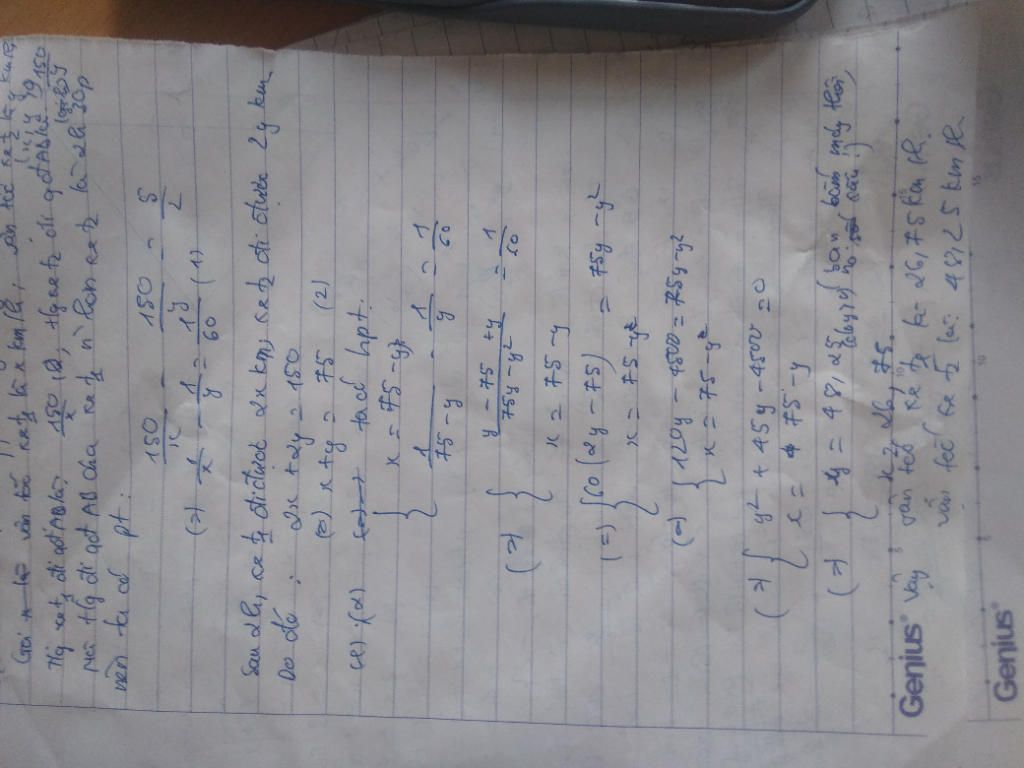 vận tốc xe 2 là y km/h
Tg xe 1 đi qđ AB là: 150/x (h), tg xe 2 đi qđ AB là 150/y
Mà tg đi qđ AB của xe 1 hơn xe 2 là 2h30p
nên ta có pt:
150/x - 150/y = 5/2
(=) 1/x - 1/y = 1/60 (1)
Sau 2h, xe 1 đi được 2x km, xe 2 đi được 2y km
Do đó: 2x + 2y = 150
(=) x + y = 75 (2)
ta có hpt.
{ x = 75 - y
1/(75 - y) - 1/y = 1/60
(=) { (y - 75 + y)/(75y - y²) = 1/60
x = 75 - y
(=) { 60(2y - 75) = 75y - y²
x = 75 - y
(=) { 120y - 4500 = 75y - y²
x = 75 - y
(=) { y² + 45y - 4500 = 0
x = 75 - y
(=) { y = 48,25 (bấm máy
x = 26,75
vậy vận tốc xe 1 là 26,75 km/h
vận tốc xe 2 là: 48,25 km/h
Genius®
Genius®